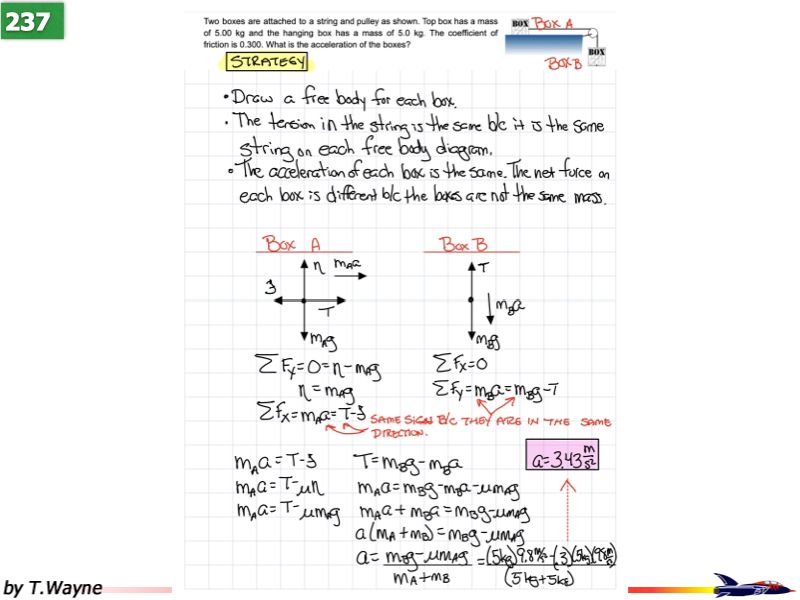 237
Two boxes are attached to a string and pulley as shown. Top box has a mass
of 5.00 kg and the hanging box has a mass of 5.0 kg. The coefficient of
friction is 0.300. What is the acceleration of the boxes?
BOX
BOX A
BOX
BOX B
STRATEGY
• Draw a free body for each box.
• The tension in the string is the same b/c it is the same
string on each free body diagram.
• The acceleration of each box is the same. The net force on
each box is different b/c the boxes are not the same mass.
Box A
Box B
η
mAa
f
T
mAg
T
mBa
mBg
ΣFy=0=η-mAg
η=mAg
ΣFx=mAa=T-f
ΣFx=0
ΣFy=mBa=mBg-T
SAME SIGN B/C THEY ARE IN THE SAME
DIRECTION.
mAa=T-f
mAa=T-μη
mAa=T-μmAg
T=mBg-mBa
mAa=mBg-mBa-μmAg
mAa+mBa=mBg-μmAg
a(mA+mB)=mBg-μmAg
a=(mBg-μmAg)/(mA+mB)=((5kg)9.8m/s²-(.3)(5kg)(9.8m/s²))/(5kg+5kg)
a=3.43 m/s²
by T.Wayne